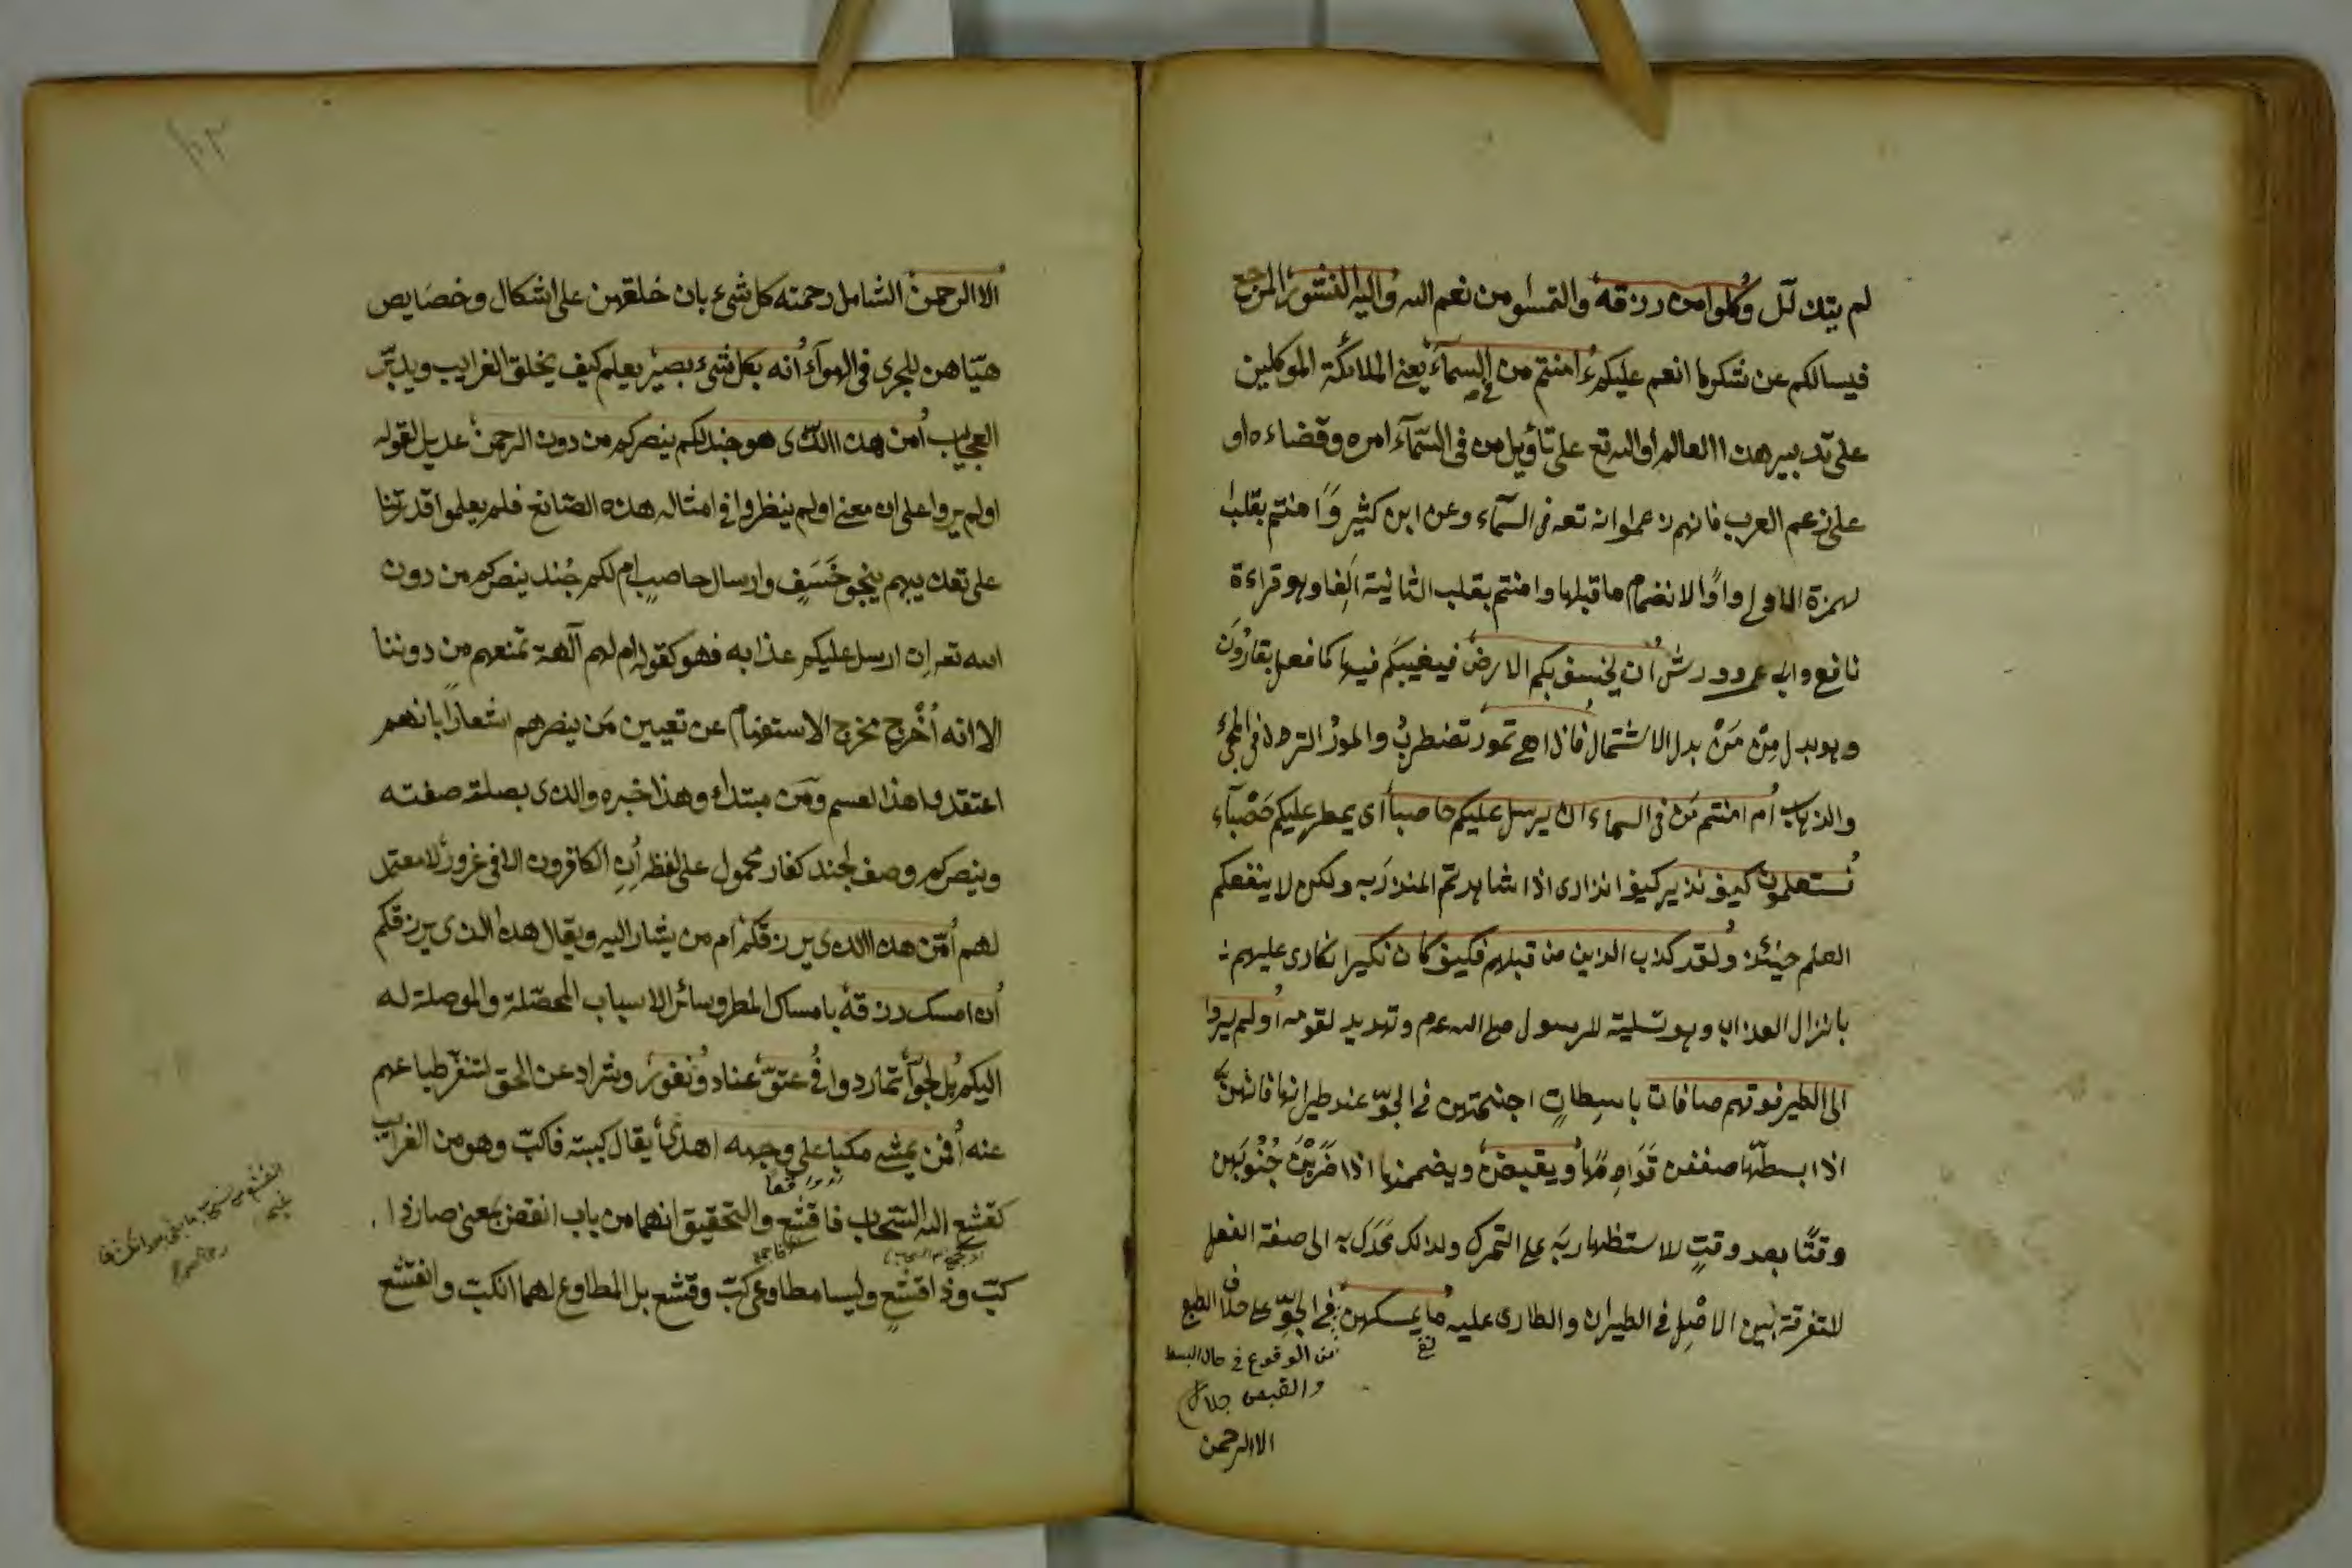 لم يتذلل وكلوا من رزقه والتمسوا من نعم الله واليه النشور المرجع
فيسالكم عن شكر ما انعم عليكم ءامنتم من في السماء يعنى الملائكة الموكلين
على تدبير هذا العالم او الله تع على تأويل من فى السمآء امره وقضاءه او
على زعم العرب فانهم زعموا انه تعه فى السمآء وعن ابن كثير وامنتم بقلب
لهمزة الاولى واوًا لانضمام ما قبلها وامنتم بقلب الثانية الفا وهو قراءة
نافع وابى عمرو وورش ان يخسف بكم الارض فيغيبكم فيها كما فعل بقارون
وهو بدل مِنْ مَنْ بدل الاشتمال فاذا هى تمور تضطرب والمور التردد فى المجئ
والذهاب ام امنتم من فى السماء ان يرسل عليكم حاصبا اى يمطر عليكم حصباء
فستعلمون كيف نذير كيف انذارى اذا شاهدتم المنذر به ولكن لا ينفعكم
العلم حينئذ ولقد كذب الذين من قبلهم فكيف كان نكير انكارى عليهم
بانزال العذاب وهو تسلية للرسول صلى الله عم وتهديد لقومه اولم يروا
الى الطير فوقهم صافات باسطاتٍ اجنحتهن فى الجوّ عند طيرانها فانهنّ
اذا بسطنها صففن قوادمها ويقبضن ويضممنها اذا ضربن جنوبهن
وقتًا بعد وقتٍ للاستظهار به على التحرك ولذلك عدل به الى صفة الفعل
للتفرقة بين الاصل فى الطيران والطارى عليه ما يمسكهن فى الجوّ على خلاف الطبع
من الوقوع فى حال البسط
والقبض جلال
الا الرحمن
الا الرحمن الشامل رحمته كل شئ بان خلقهن على اشكال وخصايص
هيّاهن للجرى فى الهوآء انه بكل شئ بصير يعلم كيف يخلق الغرايب ويدبّر
العجايب امن هذا الذى هو جند لكم ينصركم من دون الرحمن عديل لقوله
اولم يروا على ان معنى اولم ينظروا فى امثال هذه الصّنائع فلم يعلموا قدرتنا
على تعذيبهم بنحو خسف وارسال حاصبٍ ام لكم جُند ينصركم من دون
الله تعه ان ارسل عليكم عذابه فهو كقوله ام لهم آلهة تمنعهم من دوننا
الا انه اُخْرج مخرج الاستفهام عن تعيين مَن ينصرهم اشعارًا بانهم
اعتقدوا هذا القسم ومن مبتداء وهذا خبره والذى بصلته صفته
وينصركم وصف لجند كفار محمول على لفظه اِنِ الكافرون الا فى غرور لا معتمد
لهم امّن هذا الذى يرزقكم ام من يشار اليه ويقال هذا الذى يرزقكم
ان امسك رزقه بامساك المطر وسائر الاسباب المحصّلة والموصلة له
اليكم بل لجوا تمادوا فى عتوّ عناد ونفور وشراد عن الحق لتنفّر طباعهم
عنه افمن يمشى مكبا على وجهه اهدى يقال كببته فاكبّ وهو من الغرايب
كقشع الله السّحاب فاقشع والتحقيق انهما من باب انفض بمعنى صار ذا
كبّ وذا قشعٍ وليسا مطاوعى كبّ وقشع بل المطاوع لهما انكبّ وانقشع